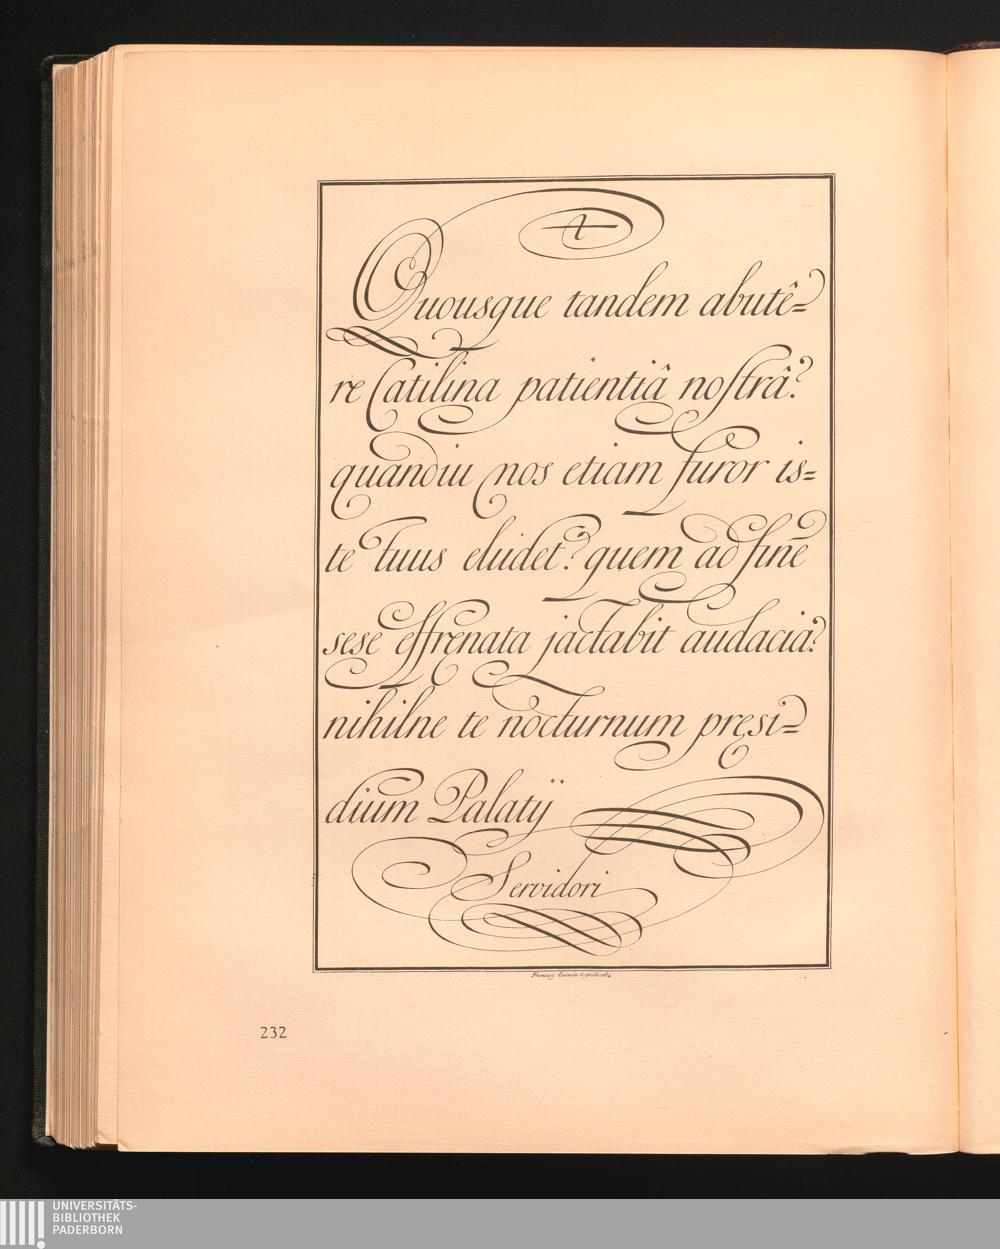 Quousque tandem abutê=
re Catilina patientiâ noſtrâ?
quandiu nos etiam furor is=
te tuus eludet? quem ad finē
sese effrenata jactabit audacia?
nihilne te nocturnum pręsi=
dium Palatij
Servidori
232
UNIVERSITÄTS-
BIBLIOTHEK
PADERBORN